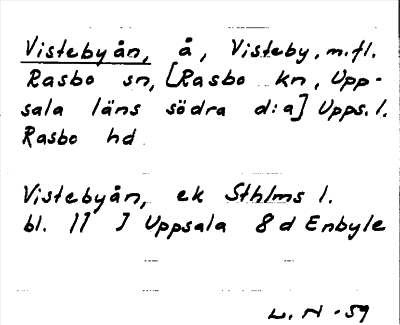 Vistebyån, å, Visteby, m.fl.
Rasbo sn, [Rasbo kn, Upp-
sala läns södra d:a] Upps. l.
Rasbo hd
Vistebyån, ek Sthlms l.
bl. 11 I Uppsala 8 d Enbyle
L. N -59